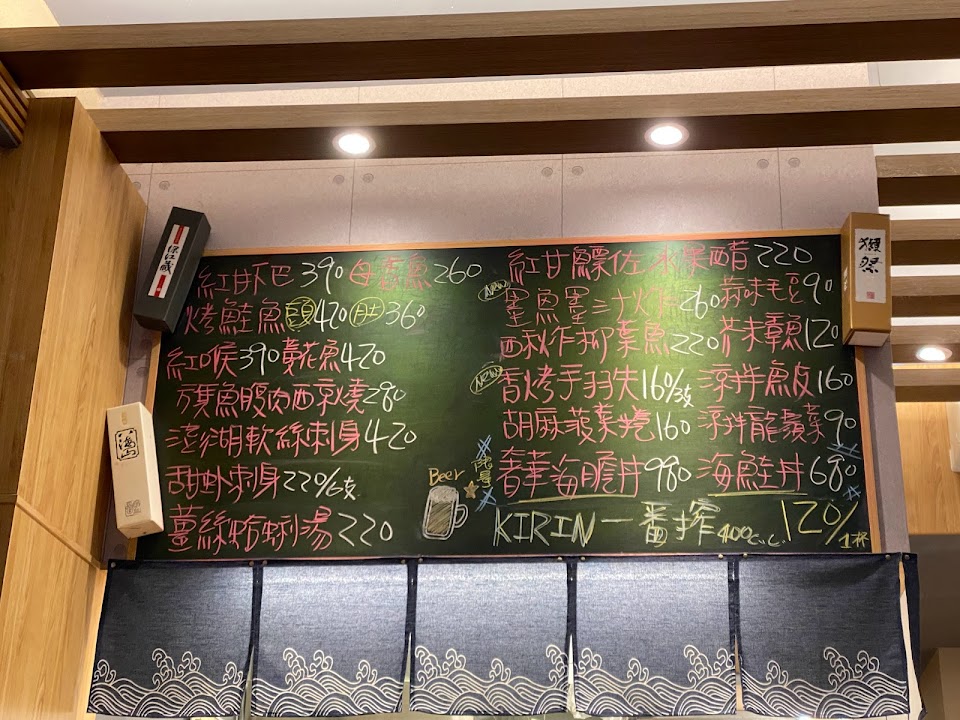 紅甘下巴390 母香魚260
烤鮭魚頭420 肚360
紅喉390 黃花魚420
魚腹肉西京燒280
澎湖軟絲刺身420
甜蝦刺身220/6支
薑絲蛤蜊湯220
紅甘鰾佐水果醋220
NEW 墨魚墨汁260 蒜味毛豆90
酥炸柳葉魚220 芥末章魚120
NEW 香烤手羽先160/3支 涼拌魚皮160
胡麻菠菜捲160 涼拌龍鬚菜90
奢華海膽丼980 海鮭丼680
Beer
KIRIN一番搾 400c.c. 120/1杯
獺祭
八海山